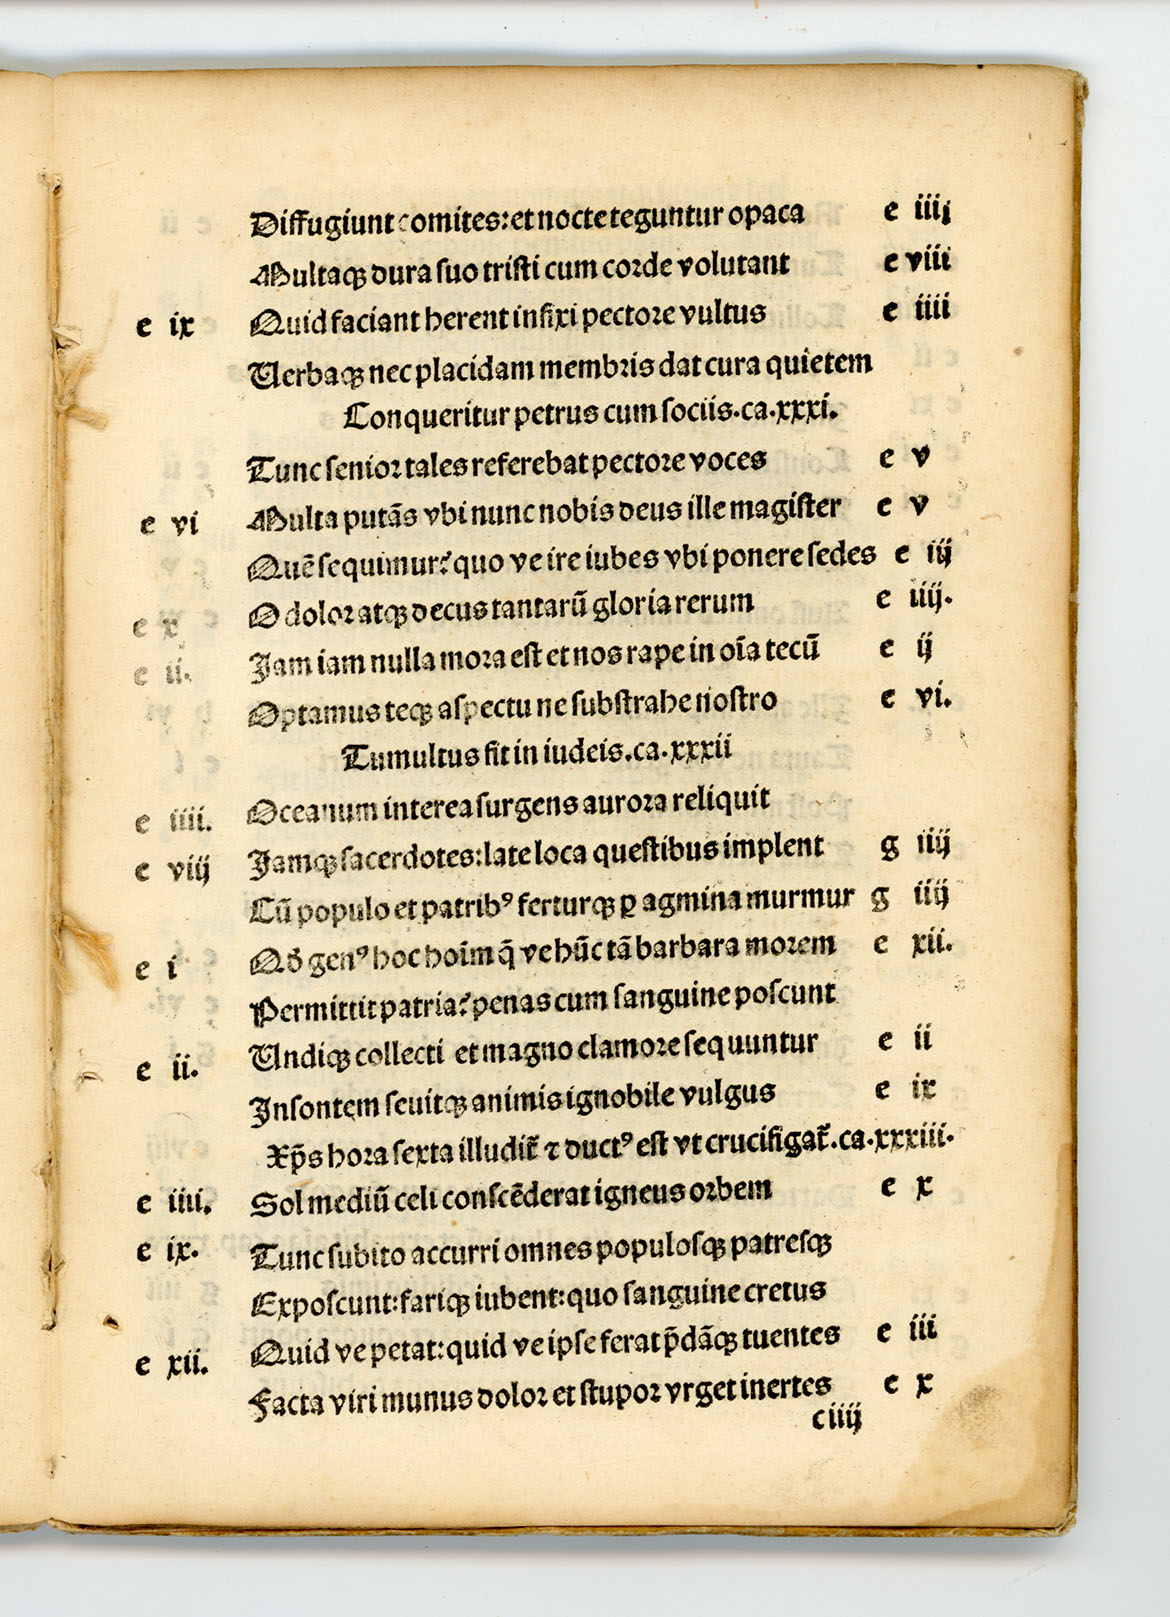 Diffugiunt comites: et nocte teguntur opaca e iiij
Multaqꝫ dura suo tristi cum corde volutant e viii
e ix Quid faciant herent infixi pectore vultus e iiii
Uerbaqꝫ nec placidam membris dat cura quietem
Conqueritur petrus cum sociis.ca.xxxi.
Tunc senior tales referebat pectore voces e v
e vi Multa putãs vbi nunc nobis deus ille magister e v
Quẽ sequimur? quo ve ire iubes vbi ponere sedes e iij
e x O dolor atqꝫ decus tantarũ gloria rerum e iiij.
e ii. Jam iam nulla mora est et nos rape in oĩa tecũ e ij
Optamus teqꝫ aspectu ne substrahe nostro e vi.
Tumultus fit in iudeis.ca.xxxii
e iiii. Oceanum interea surgens aurora reliquit
e viij Jamqꝫ sacerdotes: late loca questibus implent g iiij
Cũ populo et patribꝰ ferturqꝫ ꝑ agmina murmur g iiij
e i Qđ genꝰ hoc hoĩm q̃ ve hũc tã barbara morem e xii.
Permittit patria? penas cum sanguine poscunt
e ii. Undiqꝫ collecti et magno clamore sequuntur e ii
Insontem seuitqꝫ animis ignobile vulgus e ix
Xp̃s hora sexta illudit̃ ⁊ ductꝰ est vt crucifigat̃.ca.xxxiii.
e iiii. Sol mediũ celi conscẽderat igneus orbem e x
e ix. Tunc subito accurri omnes populosqꝫ patresqꝫ
Exposcunt: fariqꝫ iubent: quo sanguine cretus
e xii. Quid ve petat: quid ve ipse ferat p̃dãqꝫ tuentes e iii
Facta viri munus dolor et stupor vrget inertes e x
ciiij